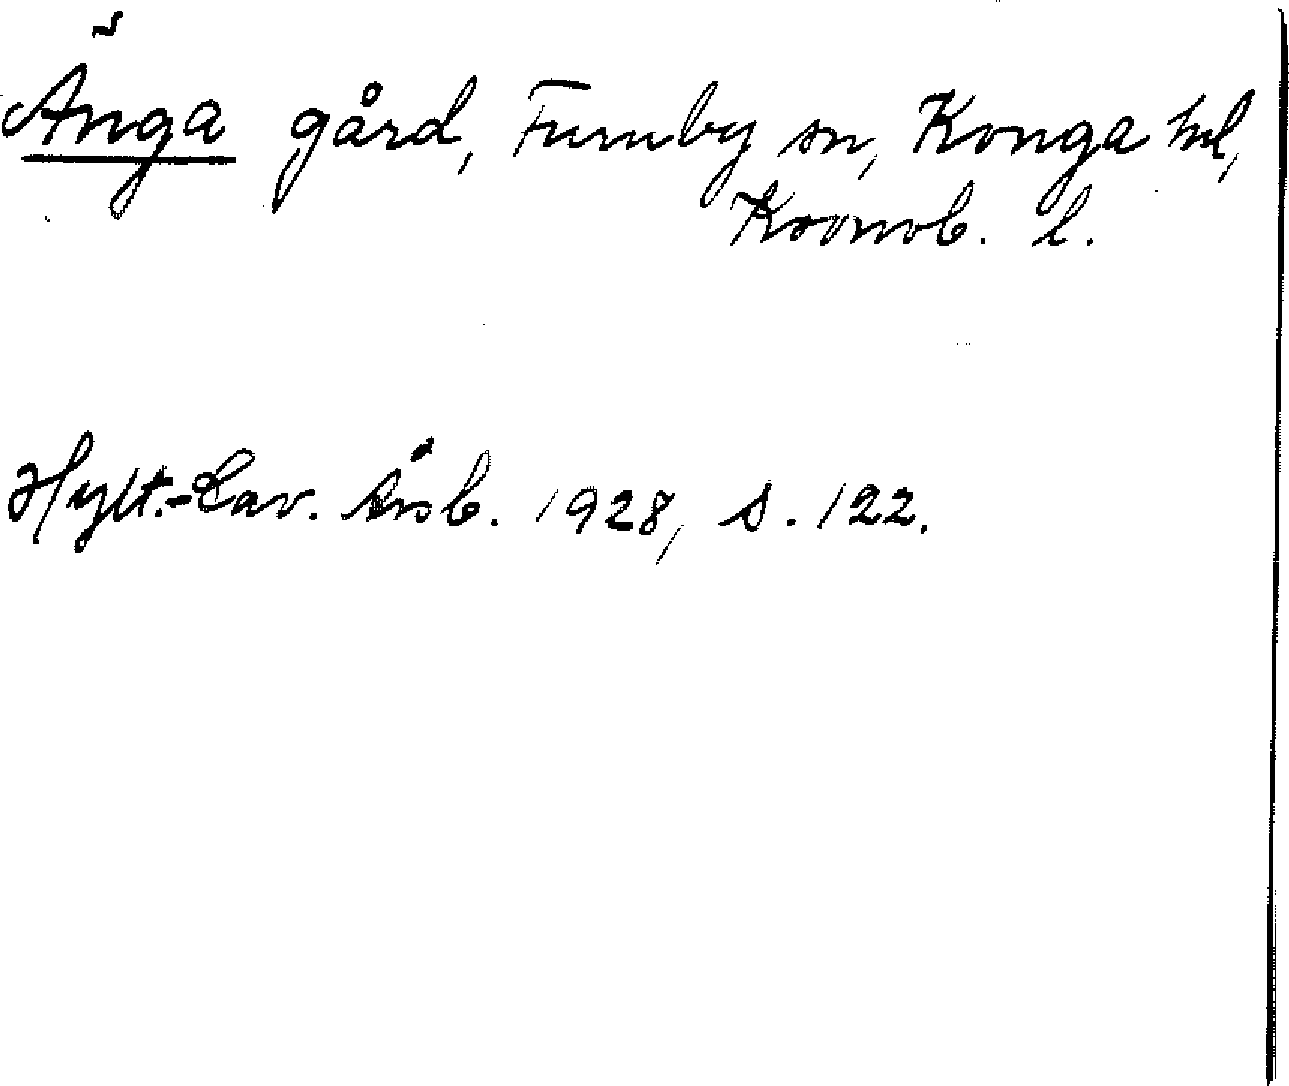 Änga gård, Furuby sn, Konga hd,
Kronob. l.
Hylt.-Cav. Årsb. 1928, s. 122.